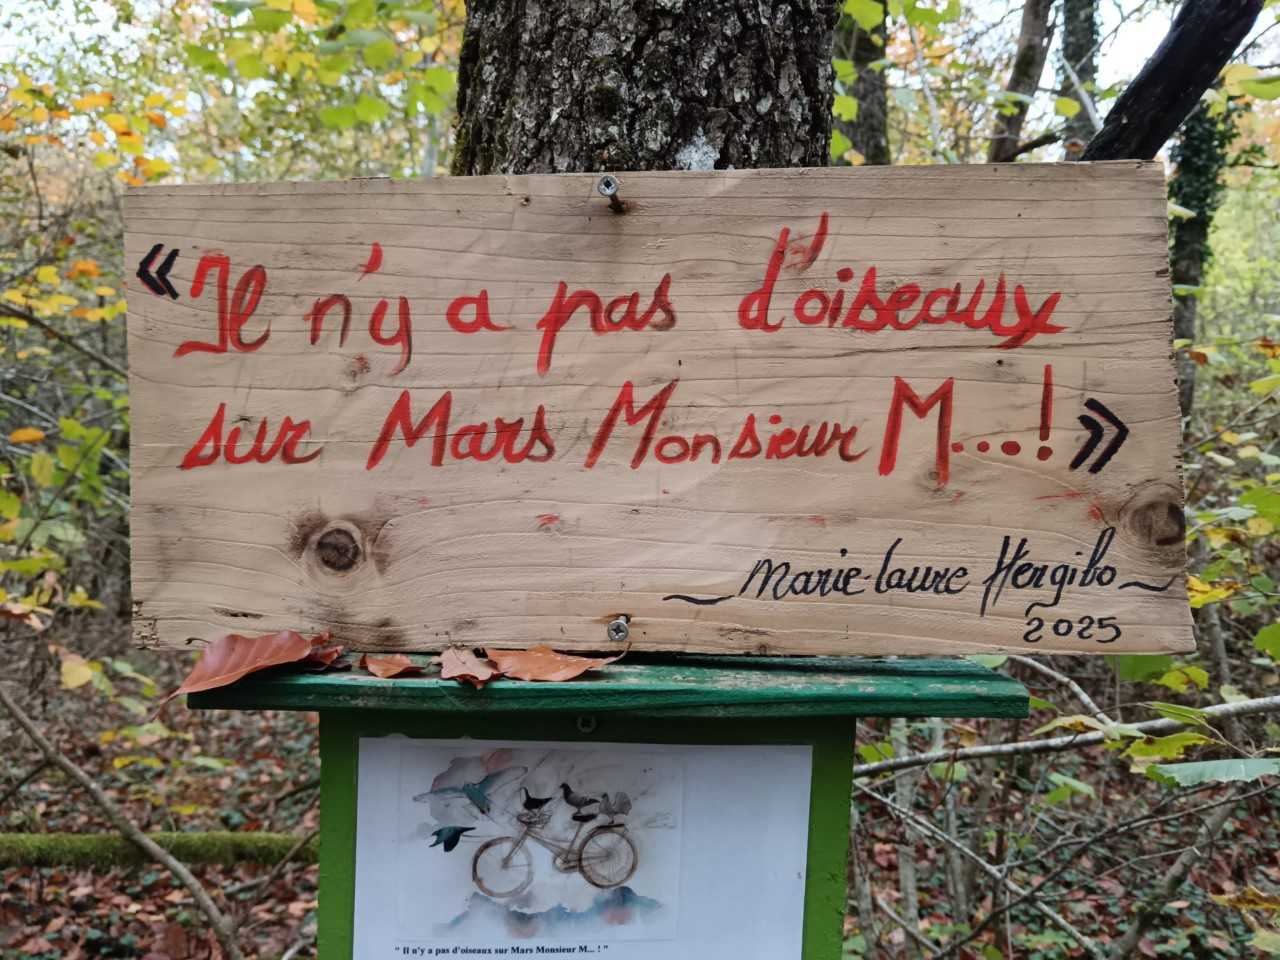 « Il n'y a pas d'oiseaux
sur Mars Monsieur M...! »
Marie-Laure Hergibo
2025
" Il n'y a pas d'oiseaux sur Mars Monsieur M... ! "